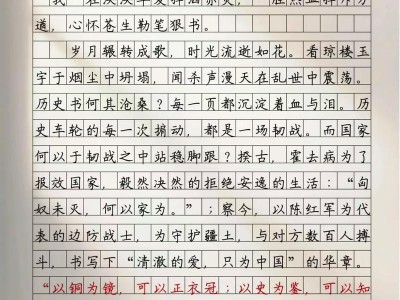 道，心怀苍生勒笔狠书。
岁月辗转成歌，时光流逝如花。看琼楼玉
宇于烟尘中坍塌，闻杀声漫天在乱世中震荡。
历史书何其沧桑？每一页都沉淀着血与泪。历
史车轮的每一次掮动，都是一场韧战。而国家
何以于韧战之中站稳脚跟？揆古，霍去病为了
报效国家，毅然决然的拒绝安逸的生活：“匈
奴未灭，何以家为。”；察今，以陈红军为代
表的边防战士，为守护疆土，与对方数百人搏
斗，书写下“清澈的爱，只为中国”的华章。
“以铜为镜，可以正衣冠；以史为鉴，可以知